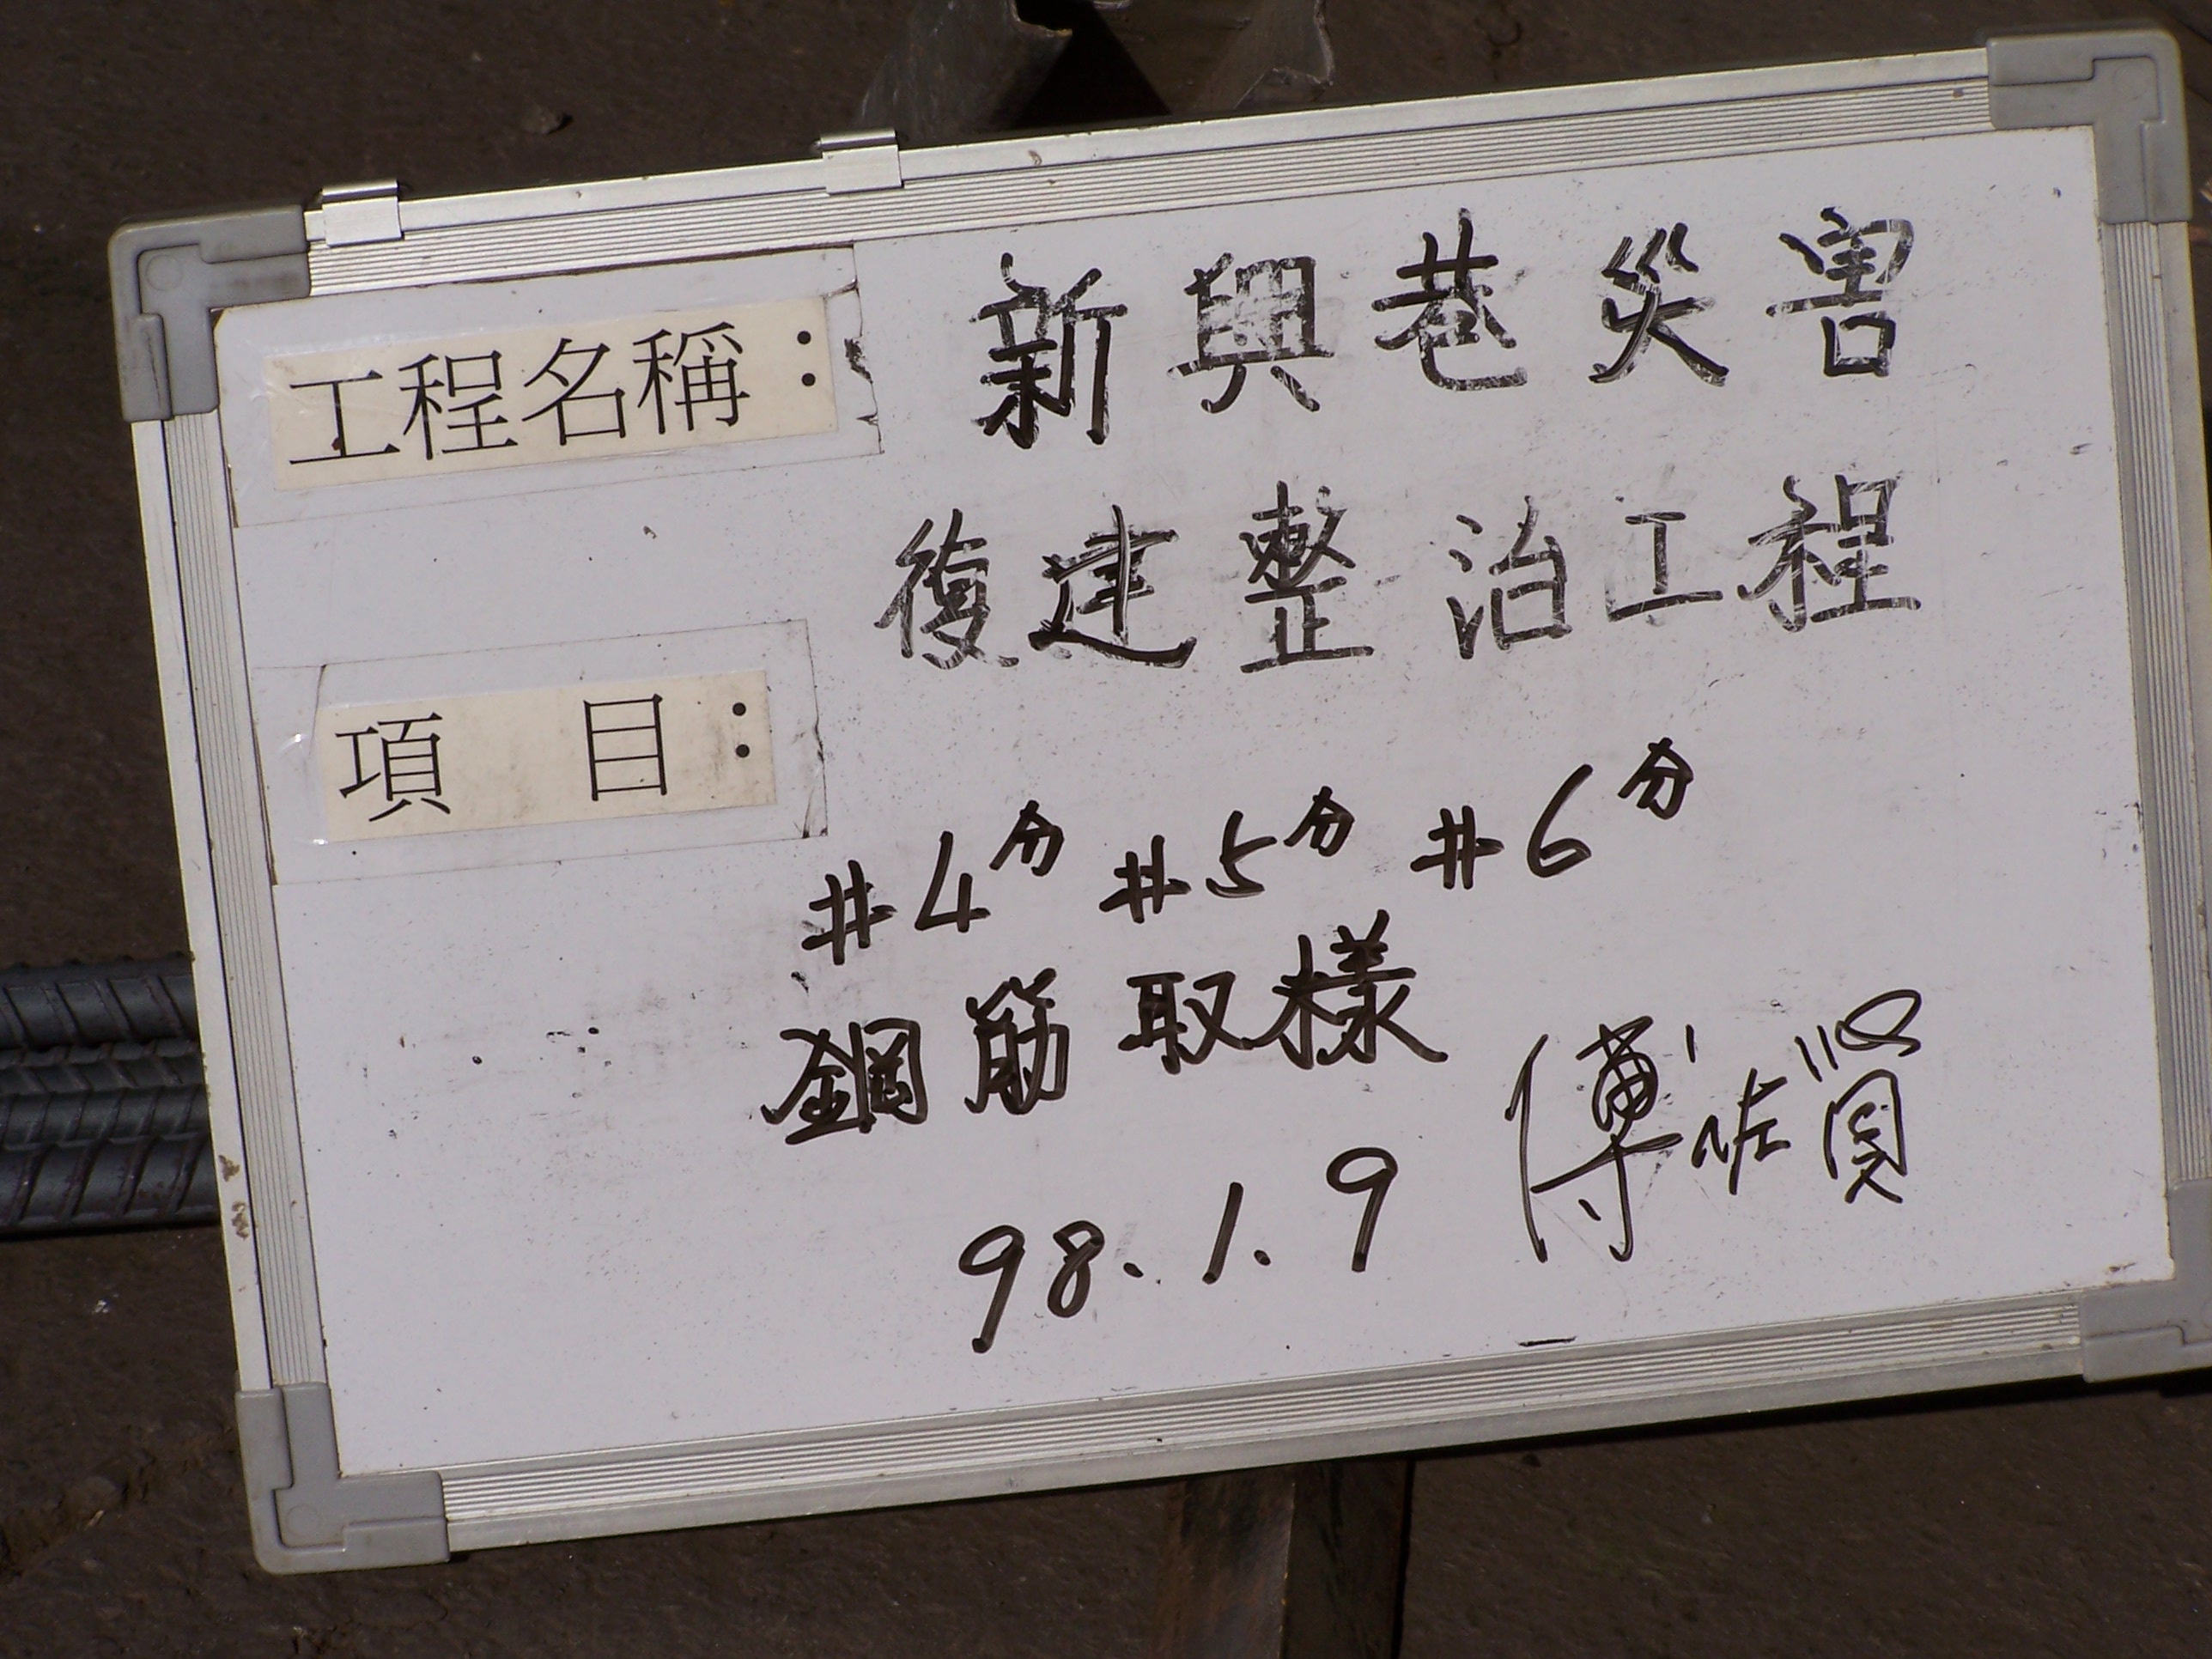 工程名稱： 新興巷災害
復建整治工程
項　目：
#4分 #5分 #6分
鋼筋取樣
98.1.9 傅佐